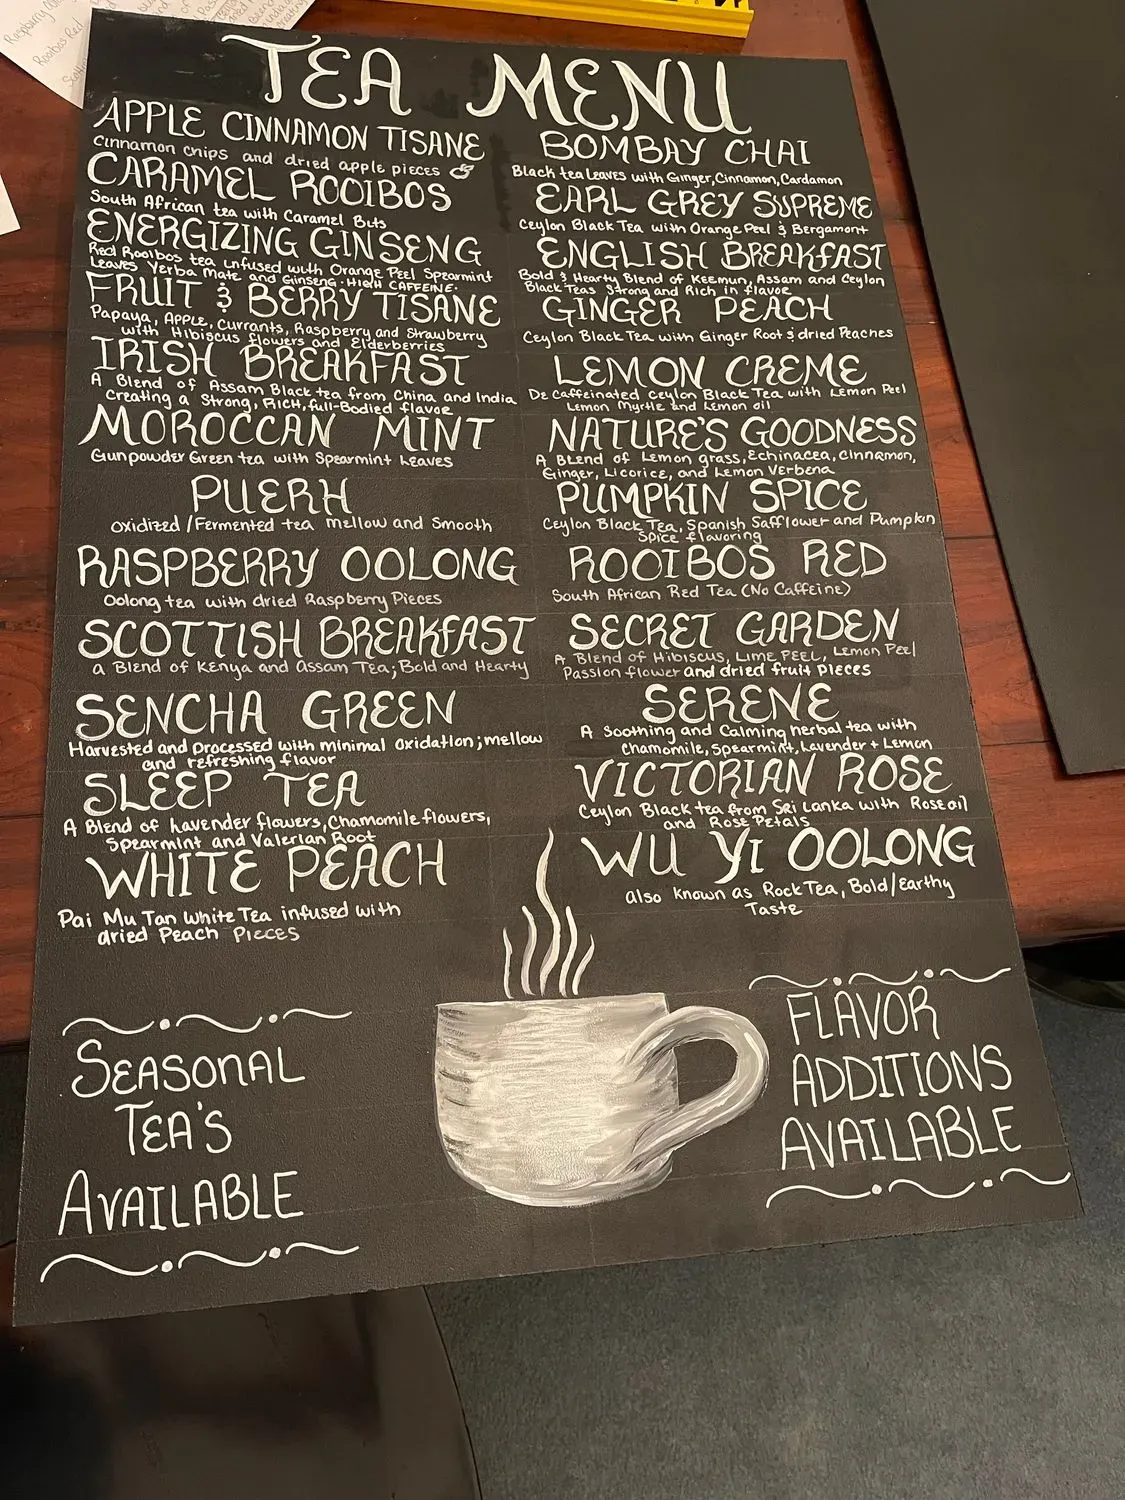 Raspberry
Rooibos Red
TEA MENU
APPLE CINNAMON TISANE
Cinnamon chips and dried apple pieces
CARAMEL ROOIBOS
South African tea with Caramel Bits
ENERGIZING GINSENG
Red Rooibos tea infused with Orange Peel Spearmint
Leaves Yerba Mate and Ginseng · HIGH CAFFEINE ·
FRUIT & BERRY TISANE
Papaya, Apple, Currants, Raspberry and Strawberry
with Hibiscus flowers and Elderberries
IRISH BREAKFAST
A Blend of Assam Black tea from China and India
creating a Strong, Rich, full-Bodied flavor
MOROCCAN MINT
Gunpowder Green tea with Spearmint Leaves
PUERH
Oxidized/Fermented tea mellow and Smooth
RASPBERRY OOLONG
Oolong tea with dried Raspberry Pieces
SCOTTISH BREAKFAST
a Blend of Kenya and Assam Tea; Bold and Hearty
SENCHA GREEN
Harvested and processed with minimal oxidation; mellow
and refreshing flavor
SLEEP TEA
A Blend of Lavender flowers, Chamomile flowers,
Spearmint and Valerian Root
WHITE PEACH
Pai Mu Tan White Tea infused with
dried Peach Pieces
BOMBAY CHAI
Black tea Leaves with Ginger, Cinnamon, Cardamon
EARL GREY SUPREME
Ceylon Black Tea with Orange Peel & Bergamont
ENGLISH BREAKFAST
Bold & Hearty Blend of Keemun, Assam and Ceylon
Black Teas Strong and Rich in flavor
GINGER PEACH
Ceylon Black Tea with Ginger Root & dried Peaches
LEMON CREME
Decaffeinated Ceylon Black Tea with Lemon Peel
Lemon Myrtle and Lemon oil
NATURE'S GOODNESS
A Blend of Lemon grass, Echinacea, Cinnamon,
Ginger, Licorice, and Lemon Verbena
PUMPKIN SPICE
Ceylon Black Tea, Spanish Safflower and Pumpkin
Spice flavoring
ROOIBOS RED
South African Red Tea (No Caffeine)
SECRET GARDEN
A Blend of Hibiscus, Lime Peel, Lemon Peel
Passion flower and dried fruit pieces
SERENE
A Soothing and Calming herbal tea with
chamomile, Spearmint, Lavender + Lemon
VICTORIAN ROSE
Ceylon Black tea from Sri Lanka with Rose oil
and Rose Petals
WU YI OOLONG
also known as Rock Tea, Bold/Earthy
Taste
SEASONAL
TEA'S
AVAILABLE
FLAVOR
ADDITIONS
AVAILABLE